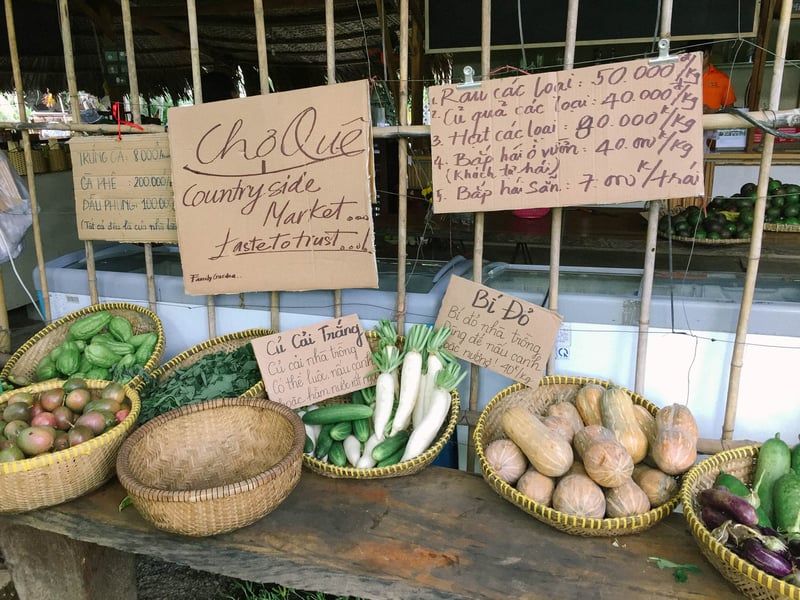 TRỨNG GÀ : 8000/
CÀ PHÊ : 200.000/
ĐẬU PHỤNG : 100.000
(Tất cả đều là của nhà
Chợ Quê
Countryside
Market...
Taste to trust...!
Family Garden
1. Rau các loại : 50.000 K/kg
2. Củ quả các loại : 40.000 K/kg
3. Hạt các loại : 80.000 K/kg
4. Bắp hái ở vườn : 40.000 K/kg
(Khách tự hái)
5. Bắp hái sẵn : 7.000 K/trái
Củ Cải Trắng
Củ cải nhà trồng
Có thể luộc nấu canh
hoặc hầm nước rất
Bí Đỏ
Bí đỏ nhà trồng
dùng để nấu canh
hoặc nướng